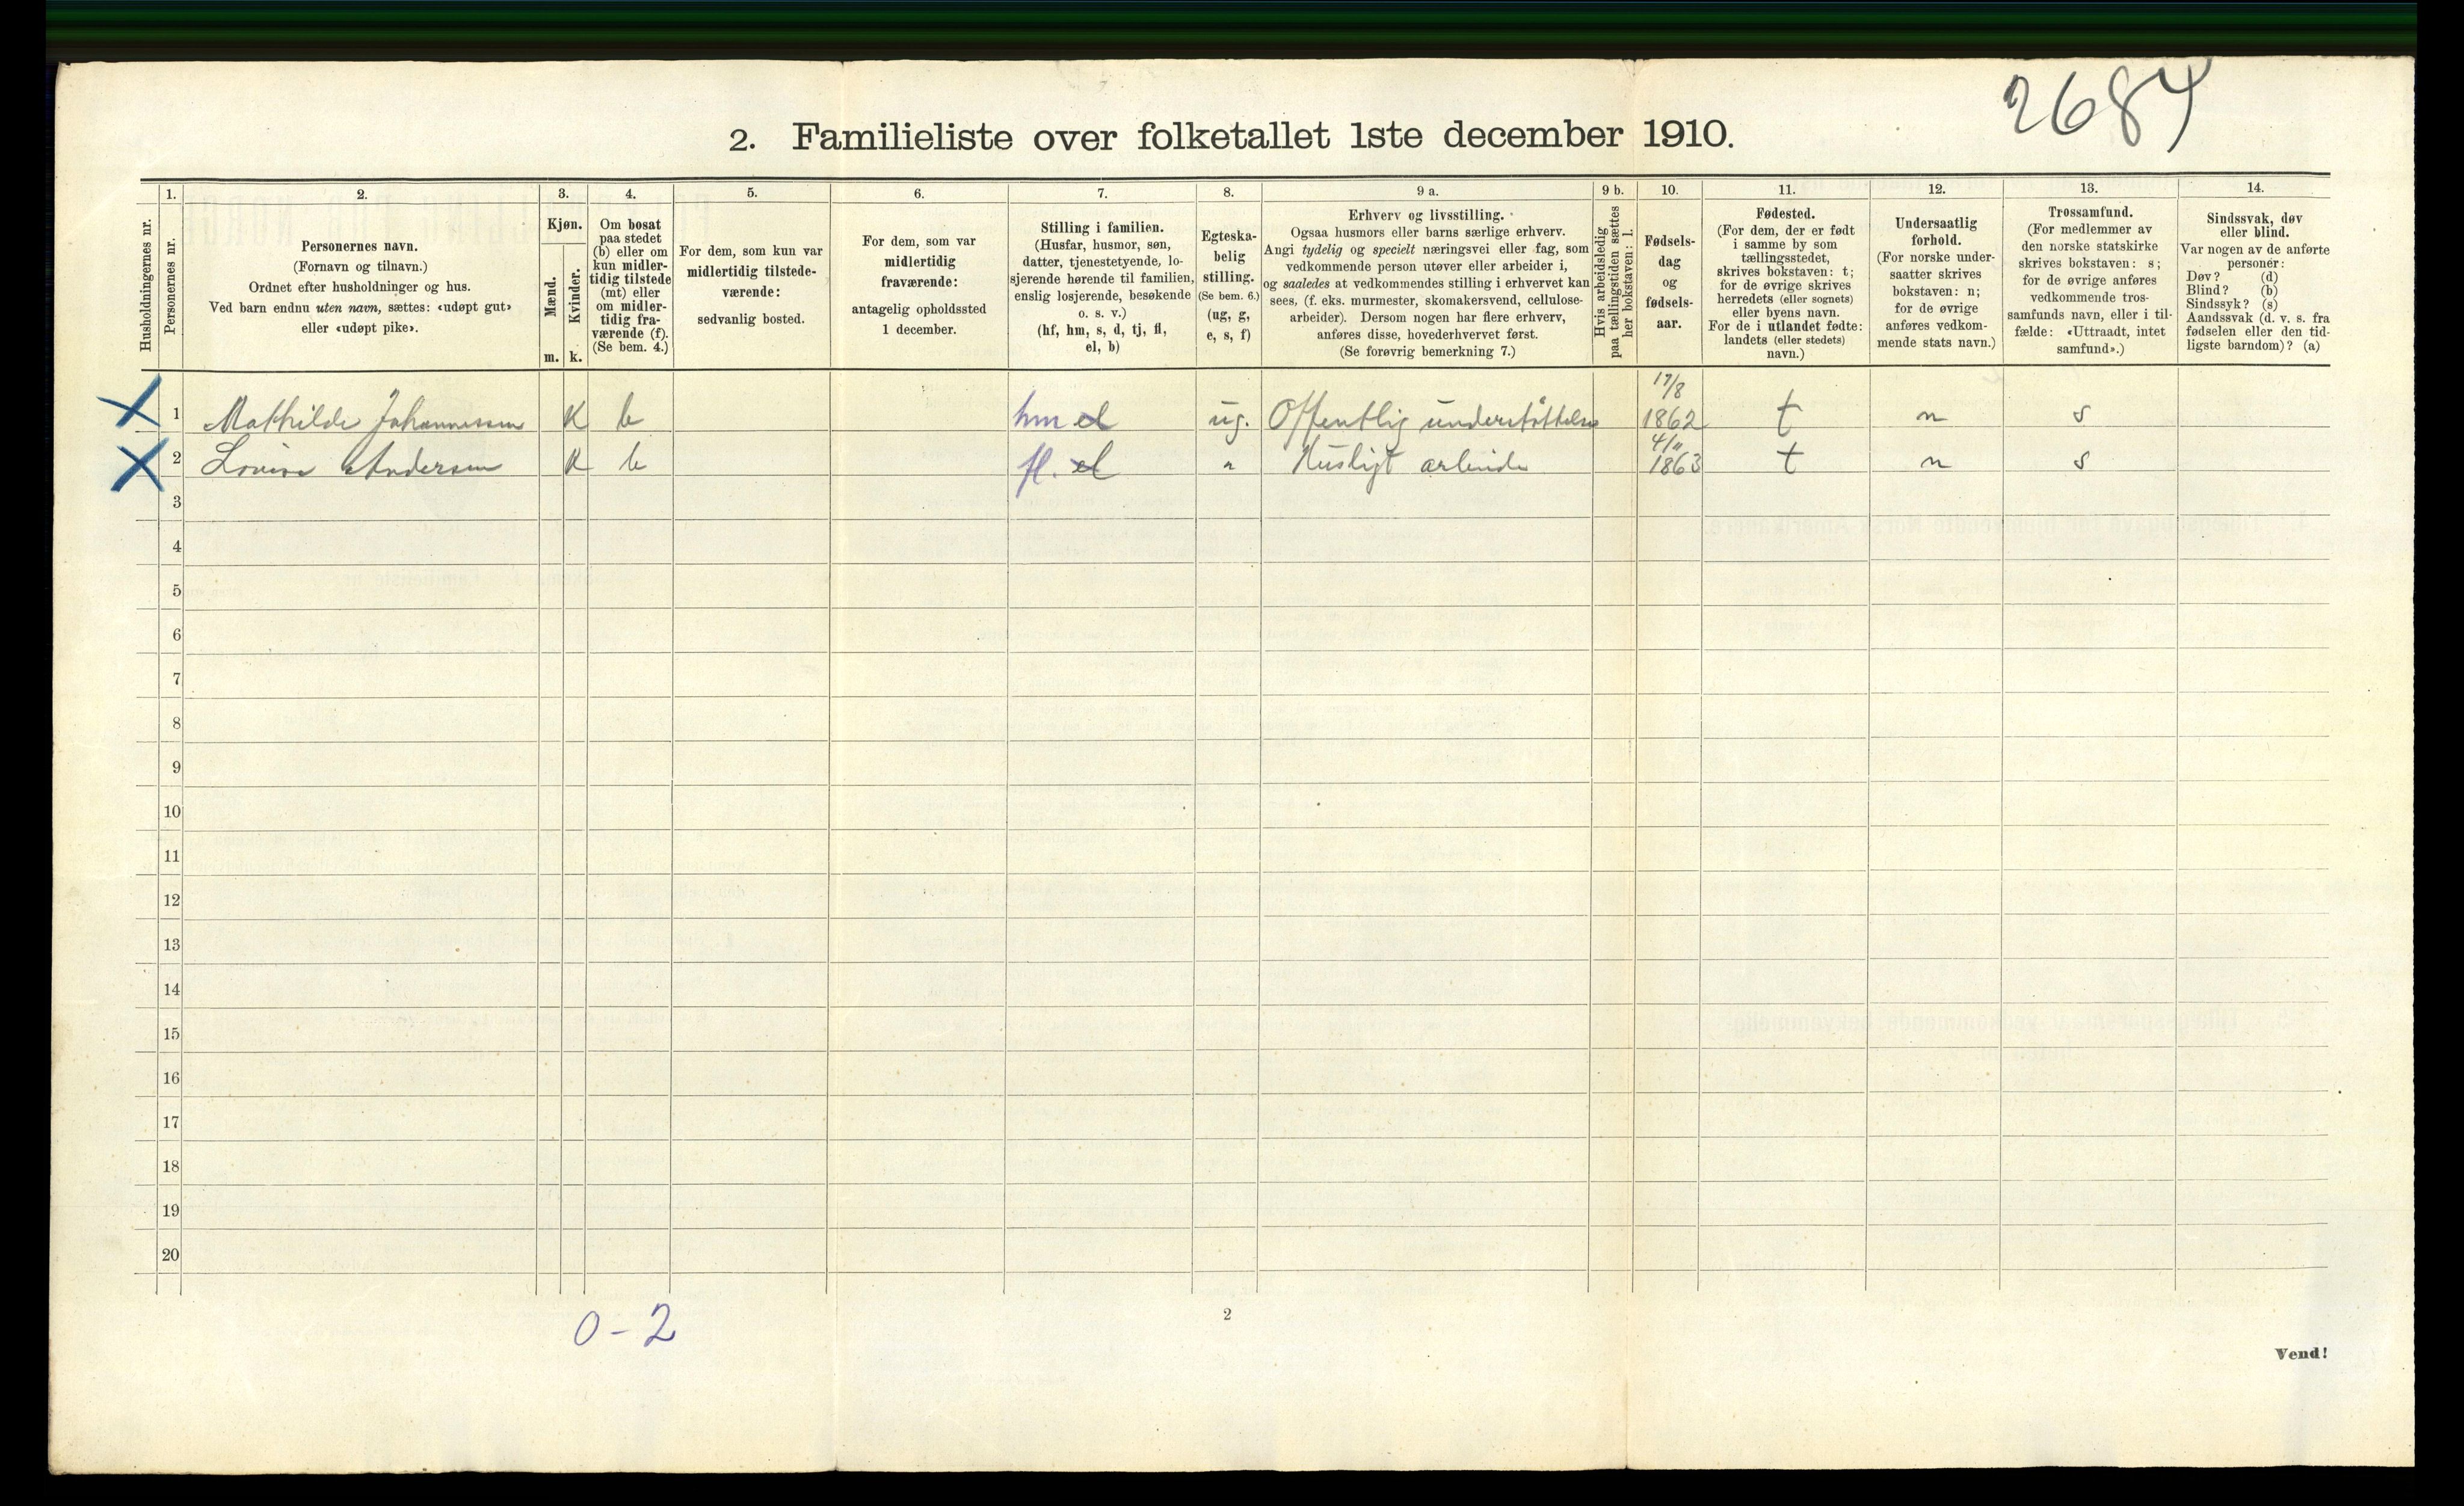 2684
2. Familieliste over folketallet 1ste december 1910.
Husholdningernes nr.
1.
Personernes nr.
2.
Personernes navn.
(Fornavn og tilnavn.)
Ordnet efter husholdninger og hus.
Ved barn endnu uten navn, sættes: «udøpt gut»
eller «udøpt pike».
3.
Kjøn.
Mænd.
Kvinder.
m. k.
4.
Om bosat
paa stedet
(b) eller om
kun midler-
tidig tilstede
(mt) eller
om midler-
tidig fra-
værende (f).
(Se bem. 4.)
5.
For dem, som kun var
midlertidig tilstede-
værende:
sedvanlig bosted.
6.
For dem, som var
midlertidig
fraværende:
antagelig opholdssted
1 december.
7.
Stilling i familien.
(Husfar, husmor, søn,
datter, tjenestetyende, lo-
sjerende hørende til familien,
enslig losjerende, besøkende
o. s. v.)
(hf, hm, s, d, tj, fl,
el, b)
8.
Egteska-
belig
stilling.
(Se bem. 6.)
(ug, g,
e, s, f)
9 a.
Erhverv og livsstilling.
Ogsaa husmors eller barns særlige erhverv.
Angi tydelig og specielt næringsvei eller fag, som
vedkommende person utøver eller arbeider i,
og saaledes at vedkommendes stilling i erhvervet kan
sees, (f. eks. murmester, skomakersvend, cellulose-
arbeider). Dersom nogen har flere erhverv,
anføres disse, hovederhvervet først.
(Se forøvrig bemerkning 7.)
9 b.
Hvis arbeidsledig
paa tællingstiden sættes
her bokstaven: l.
10.
Fødsels-
dag
og
fødsels-
aar.
11.
Fødested.
(For dem, der er født
i samme by som
tællingsstedet,
skrives bokstaven: t;
for de øvrige skrives
herredets (eller sognets)
eller byens navn.
For de i utlandet fødte:
landets (eller stedets)
navn.)
12.
Undersaatlig
forhold.
(For norske under-
saatter skrives
bokstaven: n;
for de øvrige
anføres vedkom-
mende stats navn.)
13.
Trossamfund.
(For medlemmer av
den norske statskirke
skrives bokstaven: s;
for de øvrige anføres
vedkommende tros-
samfunds navn, eller i til-
fælde: «Uttraadt, intet
samfund».)
14.
Sindssvak, døv
eller blind.
Var nogen av de anførte
personer:
Døv? (d)
Blind? (b)
Sindssyk? (s)
Aandssvak (d. v. s. fra
fødselen eller den tid-
ligste barndom)? (a)
17/8
1 Mathilde Johannessen K b hm el ug. Offentlig understøttelse 1862 t n s
4/11
2 Lovise Andersen K b fl. el " Husligt arbeide 1863 t n s
3
4
5
6
7
8
9
10
11
12
13
14
15
16
17
18
19
20
0-2
2
Vend!